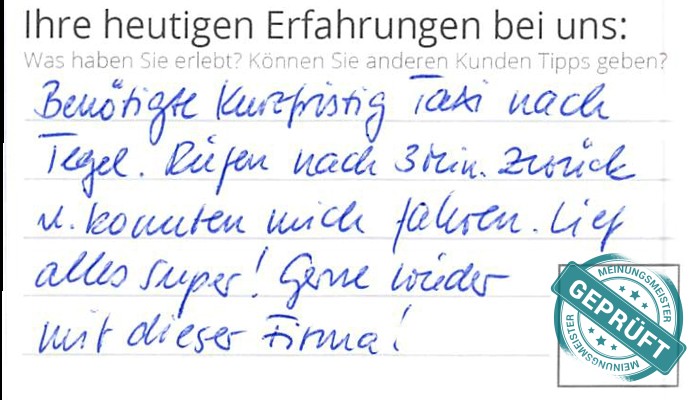 Ihre heutigen Erfahrungen bei uns:
Was haben Sie erlebt? Können Sie anderen Kunden Tipps geben?
Benötigte kurzfristig Taxi nach
Tegel. Riefen nach 3 min. zurück
u. konnten mich fahren. Lief
alles super! Gerne wieder
mit dieser Firma!
MEINUNGSMEISTER
GEPRÜFT
MEINUNGSMEISTER